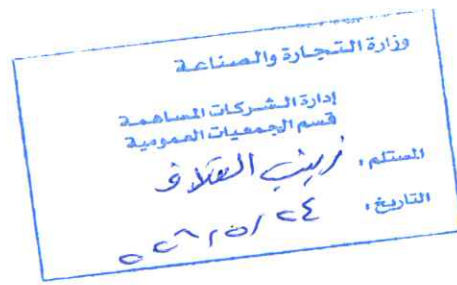 وزارة التجارة والصناعة
إدارة الشركات المساهمة
قسم الجمعيات العمومية
المستلم، زينب القلاف
التاريخ، ٢٤/٥/